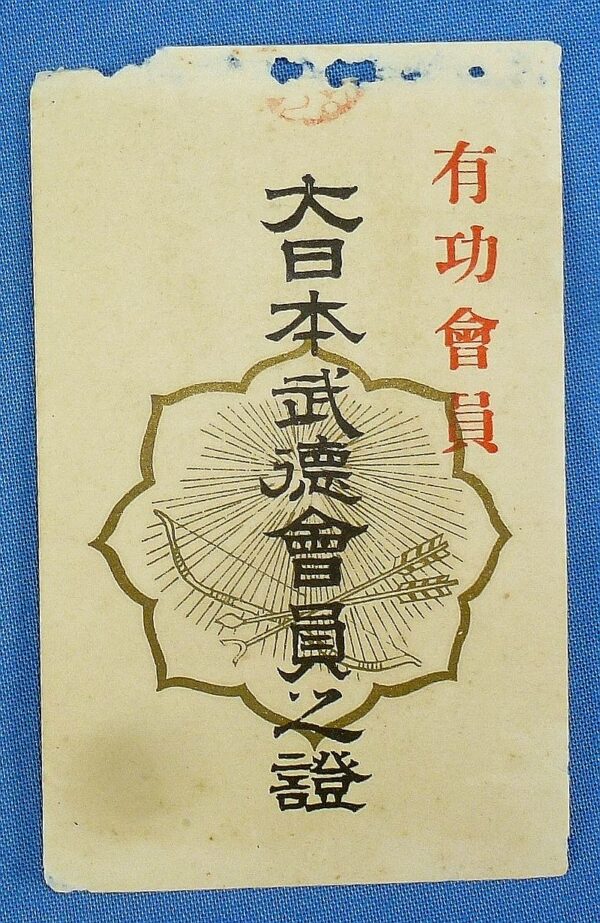 有功會員
大日本武德會員之證